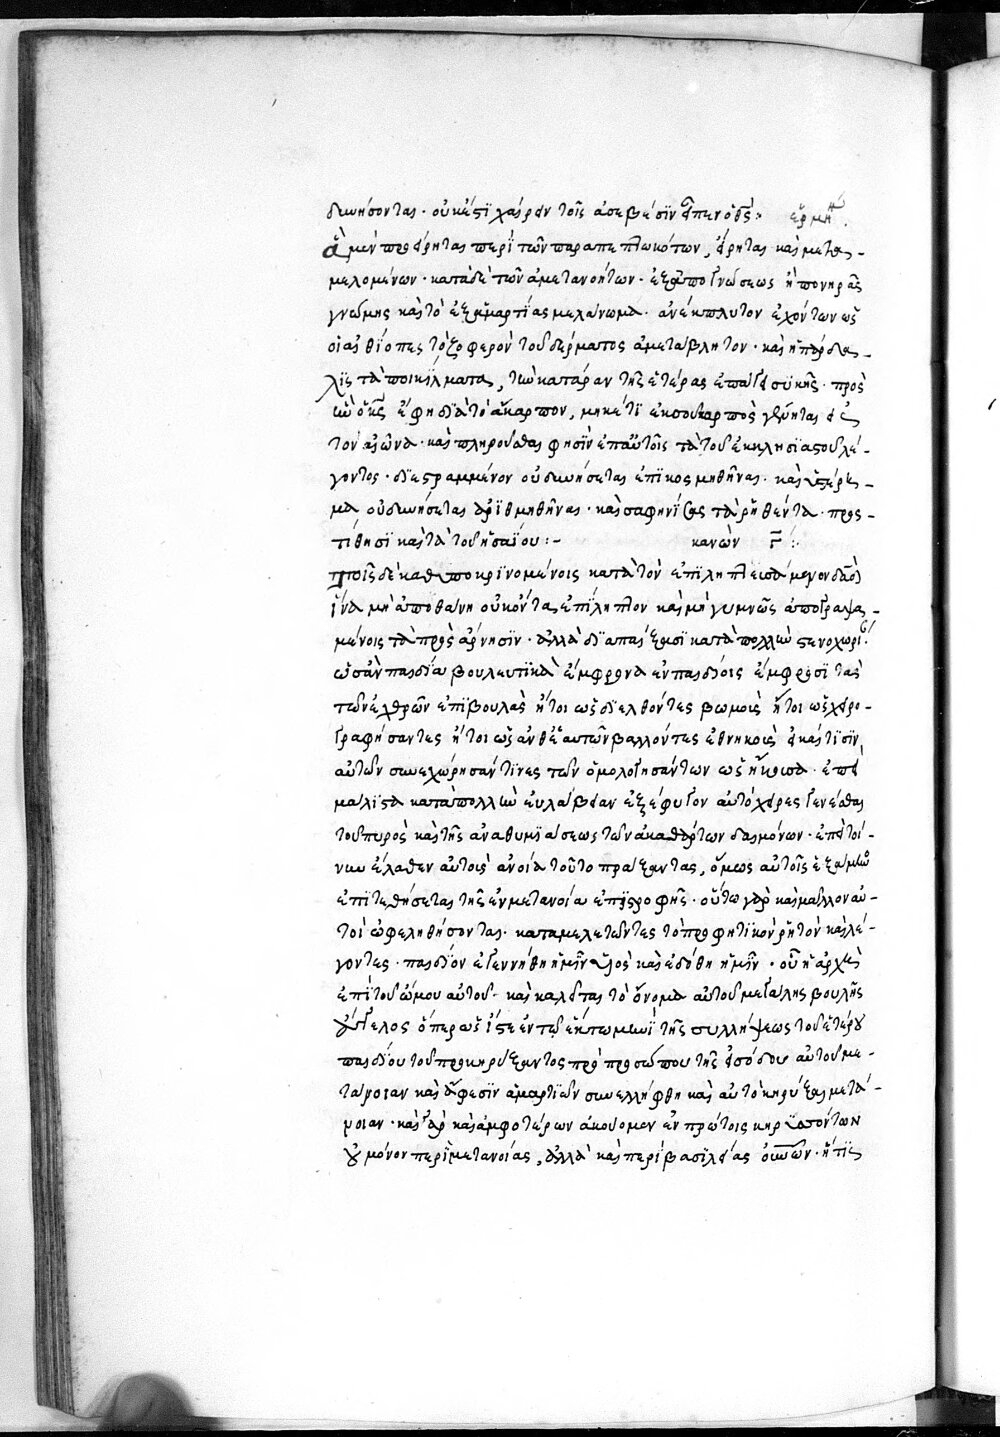 διωήσονται · οὐκέτι χαίρειν τοῖς ἀσεβέσιν εἶπεν ὁ θς : ἑρμη
ἃ μὲν προείρηται περὶ τῶν παραπεπλωκότων, εἴρηται καὶ μετα-
μελομένων · κατὰ δὲ τῶν ἀμετανοήτων · ἐξ ἀπογνώσεως ἢ πονηρᾶς
γνώμης καὶ τὸ ἐξ ἁμαρτίας μελάνωμα · ἀνέκπλυτον ἐχόντων ὡς
οἱ αἰθίοπες τὸ ζοφερὸν τοῦ δέρματος ἀμετάβλητον · καὶ ἡ παρδα-
λις τὰ ποικίλματα, τὼ κατάραν τῆς ἑτέρας ἐπάγει συκῆς · πρὸς
ὣ ὁ κς ἔφη διὰ τὸ ἄκαρπον, μηκέτι ἐκ σοῦ καρπὸς γένηται εἰς
τὸν αἰῶνα · καὶ πληροῦσθαι φησὶν ἐπ αὐτοῖς τὰ τοῦ ἐκκλησιαστοῦ λέ-
γοντος · διεστραμμένον οὐ διωήσεται ἐπικοσμηθῆναι · καὶ ὑστέρη-
μα οὐ διωήσεται ἀριθμηθῆναι · καὶ σαφηνίσας τὰ ῥηθέντα · προς-
τίθησι καὶ τὰ τοῦ ἡσαΐου :- κανὼν Γ :
τοῖς δὲ καθυποκρινομένοις κατὰ τὸν ἐπιληπτευσάμενον δαδ
ἵνα μὴ ἀποθάνη οὐκ ὄντα ἐπίληπτον καὶ μὴ γυμνῶς ἀπογραψα-
μένοις τὰ πρὸς ἄρνησιν · ἀλλὰ διαπαίξασι κατὰ πολλὼ στενοχωρί
ὡς ἂν παιδία βουλευτικὰ ἔμφρονα ἐν παιδίοις ἄφροσι τὰς
τῶν ἐχθρῶν ἐπιβουλὰς ἤτοι ὡς διελθόντες βωμοὺς ἤτοι ὡς χειρο-
γραφήσαντες ἤτοι ὡς ἀνθ ἑαυτῶν βαλλόντες ἐθνηκοὺς εἰ καί τισιν
αὐτῶν συνεχώρησαν τινες τῶν ὁμολογησάντων ὡς ἤκουσα · ἐπεὶ
μάλιστα κατὰ πολλὼ εὐλάβειαν ἐξέφυγον αὐτόχειρες γενέσθαι
τοῦ πυρὸς καὶ τῆς ἀναθυμιάσεως τῶν ἀκαθάρτων δαιμόνων · ἐπεὶ τοί-
νυν ἔλαθεν αὐτοὺς ἀνοία τοῦτο πράξαντας, ὅμως αὐτοῖς ἑξάμηνος
ἐπιτεθήσεται τῆς ἐν μετανοία ἐπιστροφῆς · οὕτω γὰρ καὶ μᾶλλον αὐ-
τοὶ ὠφεληθήσονται · καταμελετῶντες τὸ προφητικὸν ῥητὸν καὶ λέ-
γοντες · παιδίον ἐγεννήθη ἡμῖν υἱὸς καὶ ἐδόθη ἡμῖν · οὗ ἡ ἀρχὴ
ἐπὶ τοῦ ὤμου αὐτοῦ · καὶ καλεῖται τὸ ὄνομα αὐτοῦ μεγάλης βουλῆς
ἄγγελος ὅπερ ὡς ἴστε ἐν τῷ ἕκτω μηνὶ τῆς συλλήψεως τοῦ ἑτέρου
παιδίου τοῦ προκηρύξαντος πρὸ προσώπου τῆς εἰσόδου αὐτοῦ με-
τάνοιαν καὶ ἄφεσιν ἁμαρτιῶν συνελλήφθη καὶ αὐτὸ κηρύξαι μετά-
νοιαν · καὶ γὰρ καὶ ἀμφοτέρων ἀκούομεν ἐν πρώτοις κηρυσσόντων
οὐ μόνον περὶ μετανοίας, ἀλλὰ καὶ περὶ βασιλείας οὐνων · ἥτις